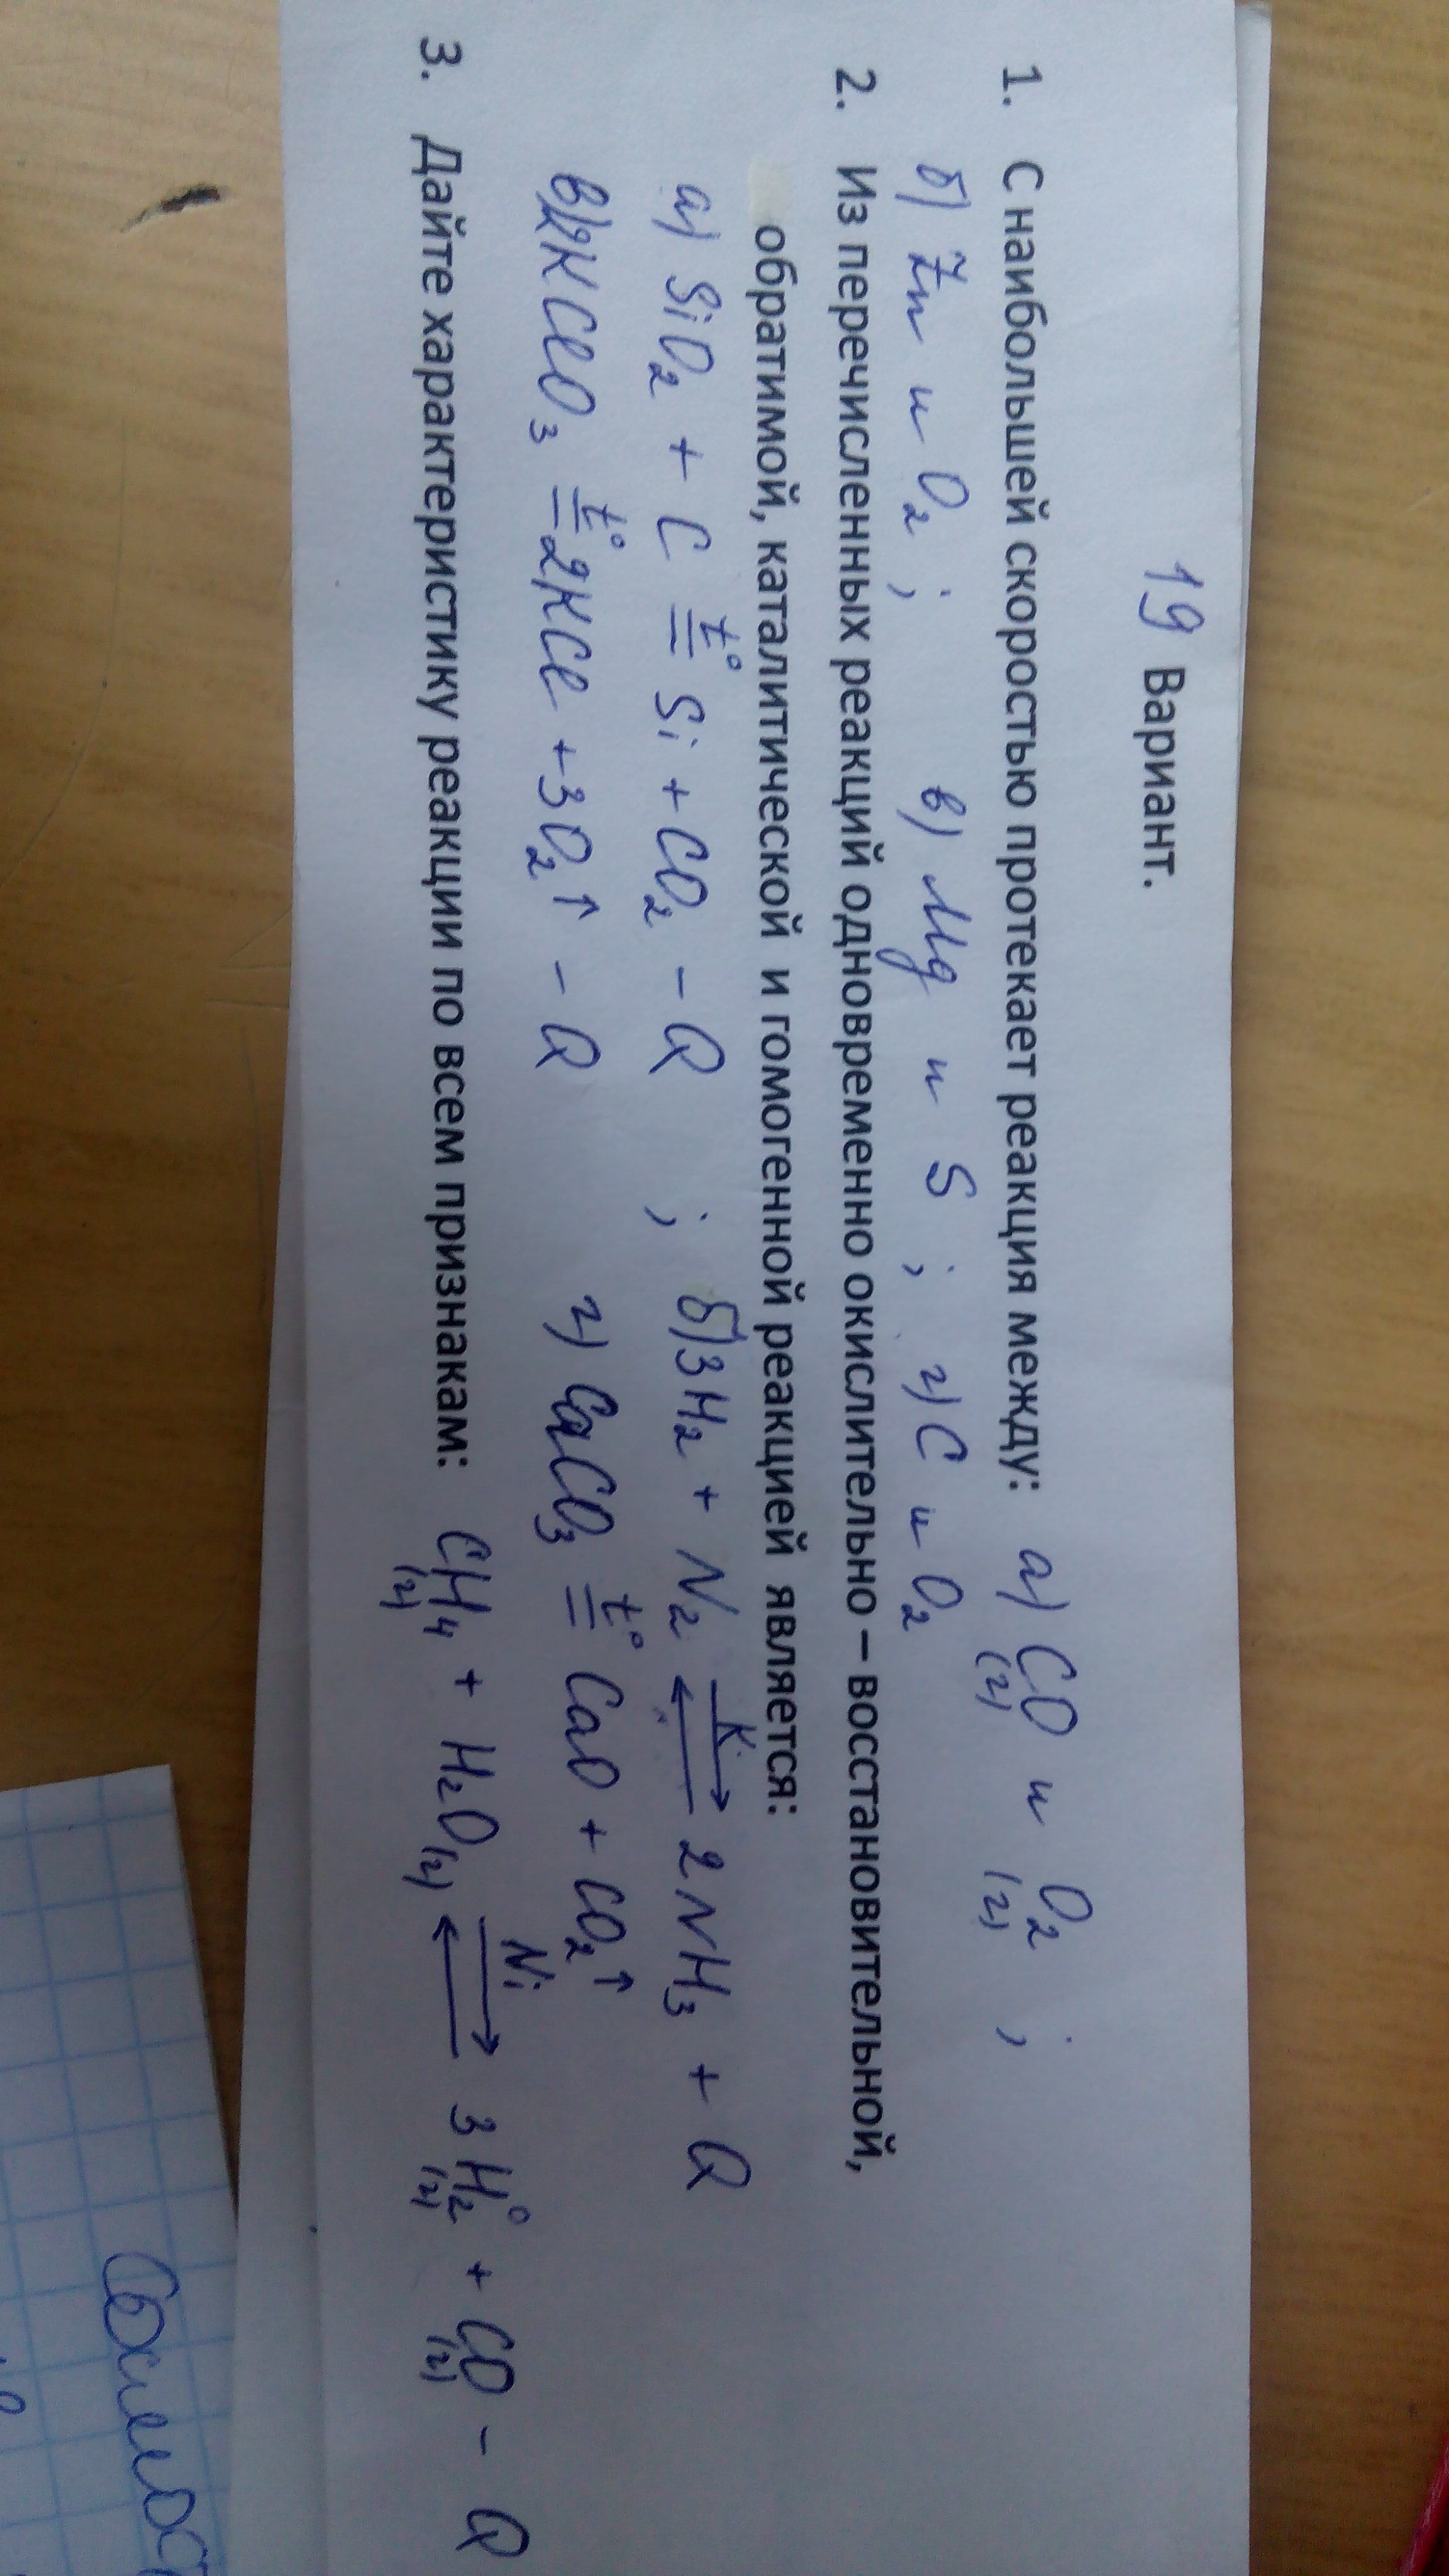 19 Вариант.
1. С наибольшей скоростью протекает реакция между: а) CO(г) и O2(г) ;
б) Zn и O2 ; в) Mg и S ; г) C и O2
2. Из перечисленных реакций одновременно окислительно – восстановительной,
обратимой, каталитической и гомогенной реакцией является:
а) SiO2 + C t°= Si + CO2 – Q ; б) 3H2 + N2 K⇄ 2NH3 + Q
в) 2KClO3 t°= 2KCl + 3O2↑ – Q г) CaCO3 t°= CaO + CO2↑
3. Дайте характеристику реакции по всем признакам: CH4(г) + H2O(г) Ni⇄ 3H2°(г) + CO(г) – Q